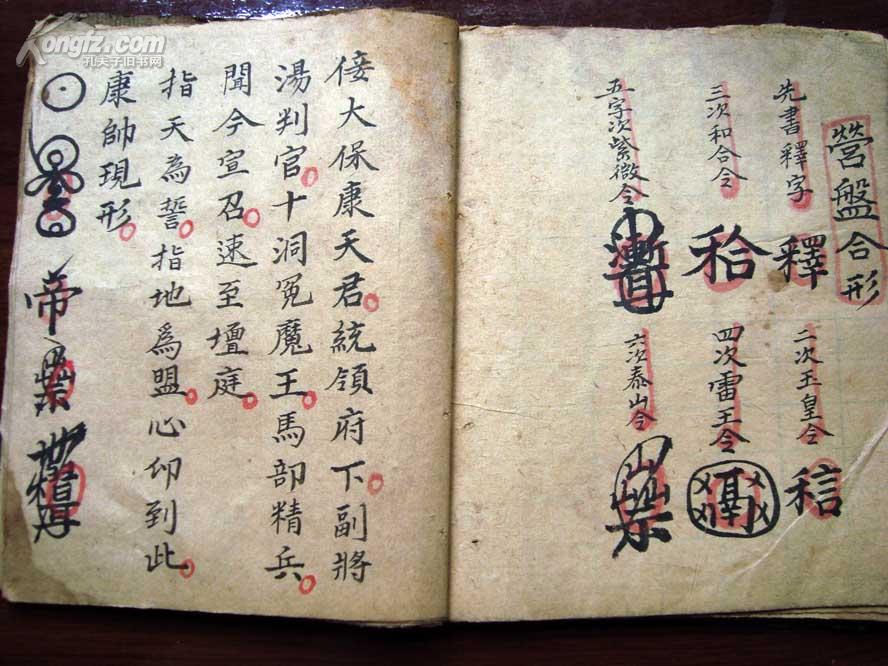 營盤合形
先書釋字 釋 二次玉皇令
三次和合令 四次雷王令
五字次紫微令 六次泰山令
倿大保康天君統領府下副將
湯判官十洞冤魔王馬部精兵
聞今宣召速至壇庭
指天為誓指地為盟心仰到此
康帥現形
帝
Kongfz.com
孔夫子旧书网